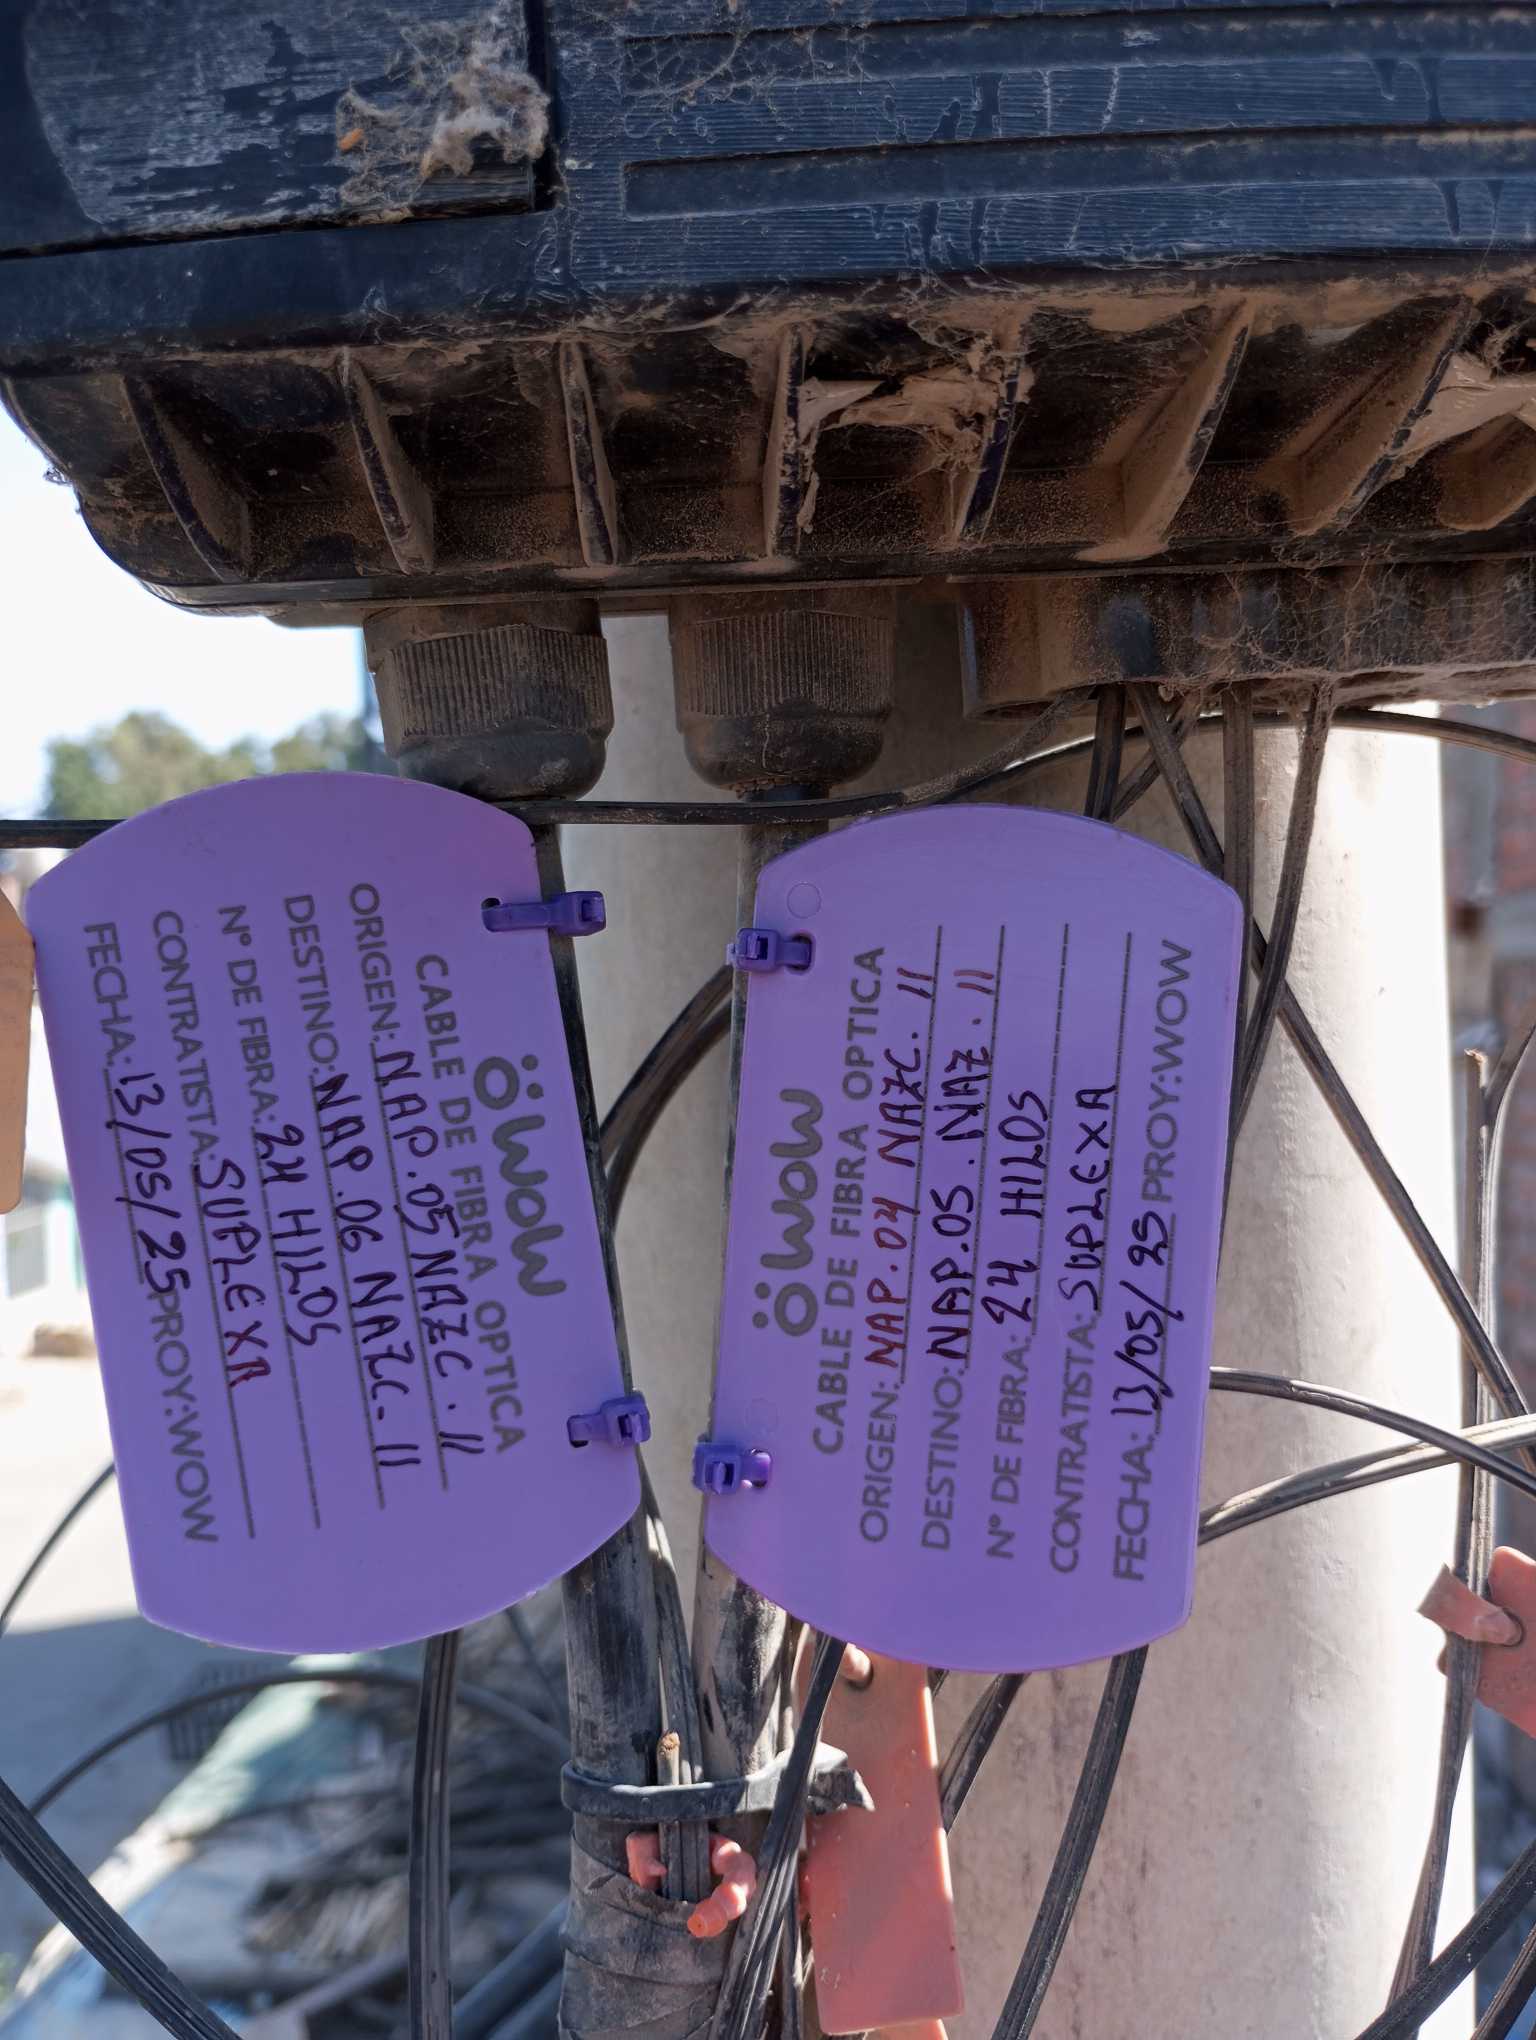 WOW
CABLE DE FIBRA OPTICA
ORIGEN: NAP.05 NAZC.11
DESTINO: NAP.06 NAZC-11
N° DE FIBRA: 24 HILOS
CONTRATISTA: SUPLEXA
FECHA: 13/05/25 PROY:WOW
WOW
CABLE DE FIBRA OPTICA
ORIGEN: NAP.04 NAZC.11
DESTINO: NAP.05.NAZ.11
N° DE FIBRA: 24 HILOS
CONTRATISTA: SUPLEXA
FECHA: 13/05/25 PROY:WOW